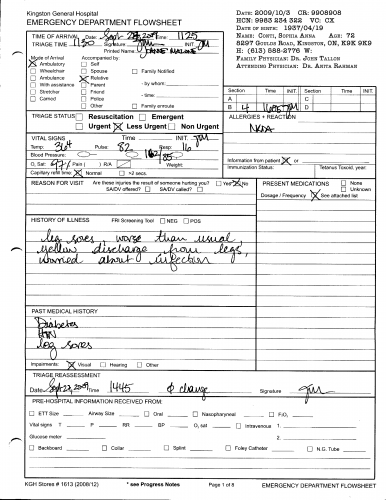 Kingston General Hospital
EMERGENCY DEPARTMENT FLOWSHEET
DATE: 2009/10/3 CR: 9908908
HCN: 9983 234 322 VC: CX
DATE OF BIRTH: 1937/04/19
NAME: CONTI, SOPHIA ANNA AGE: 72
8297 GOSLOS ROAD, KINGSTON, ON, K9K 9K9
H: (613) 888-2746 W:
FAMILY PHYSICIAN: DR. JOHN TALLON
ATTENDING PHYSICIAN: DR. ANITA RAHMAN
TIME OF ARRIVAL Date Time 1125
TRIAGE TIME 1130 Signature INIT. JM
Printed Name JOANNE MALONE
Mode of Arrival Accompanied by
Ambulatory Self
Wheelchair Spouse Family Notified
Ambulance Relative
With assistance Parent - by whom:
Stretcher Friend - time:
Carried Police
Other Other Family enroute
Section Time INIT. Section Time INIT.
A C
B 4 JM D
TRIAGE STATUS Resuscitation Emergent
Urgent Less Urgent Non Urgent
ALLERGIES + REACTION
NKDA
VITAL SIGNS INIT. JM
Temp: 364 Pulse: 82 Resp: 16
Blood Pressure: 162/85
O2 Sat: 97% Pain ( ) R/A Weight:
Capillary refill time: Normal >2 secs.
Information from patient or
Immunization Status: Tetanus Toxoid, year
REASON FOR VISIT Are these injuries the result of someone hurting you? Yes No
SA/DV offered? SA/DV called?
PRESENT MEDICATIONS None
Unknown
Dosage / Frequency See attached list
HISTORY OF ILLNESS FRI Screening Tool NEG POS
leg sores, worse than usual
yellow discharge from legs,
worried about infection
PAST MEDICAL HISTORY
Diabetes
HTN
leg sores
Impairments: Visual Hearing Other
TRIAGE REASSESSMENT
Date Sept 23, 2009 Time 1445 Ø change Signature JM
PRE-HOSPITAL INFORMATION RECEIVED FROM:
ETT Size Airway Size Oral Nasopharyneal FiO2
Vital signs T P RR BP O2 sat Intravenous 1.
Glucose meter 2.
Backboard Collar Splint Foley Catheter N.G. Tube
KGH Stores # 1613 (2008/12) * see Progress Notes Page 1 of 8 EMERGENCY DEPARTMENT FLOWSHEET